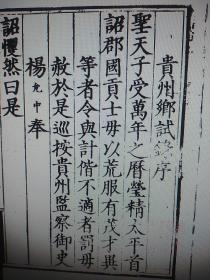 貴州鄉試錄序
聖天子受萬年之曆瑩精太平首
詔郡國貢士毋以荒服有茂才異
等者令與計偕不適者罰毋
赦於是巡按貴州監察御史
楊允中奉
詔懼然曰是